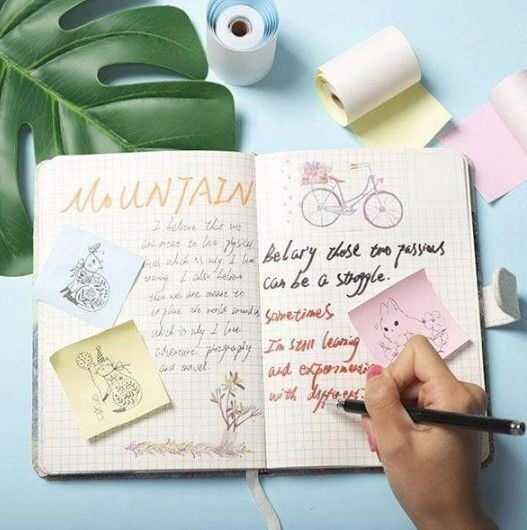 MOUNTAIN
I believe that we
are meant to live physical
lives which is why I love
I also believe
that we are meant to
explore the world around us
which is why I love
adventure, photography
and travel.
Belary those two passions
can be a struggle.
sometimes
I'm still learing
and experimenting
with different